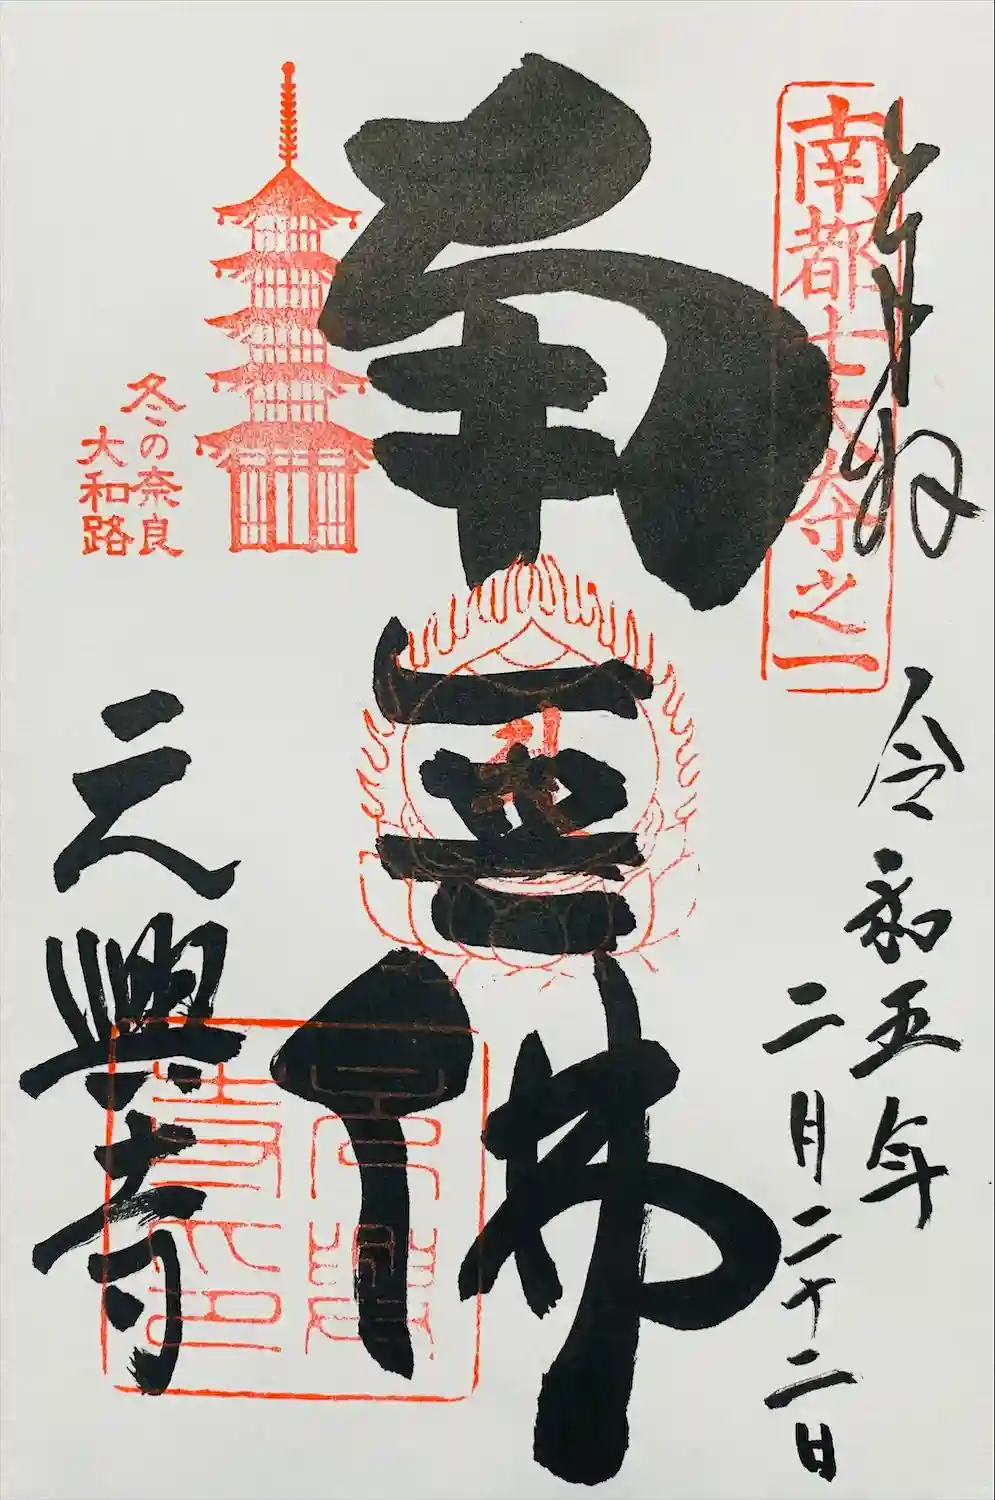 奉拝
南都七大寺之一
令和五年
二月二十二日
南無佛
冬の奈良
大和路
元興寺
元興
寺印